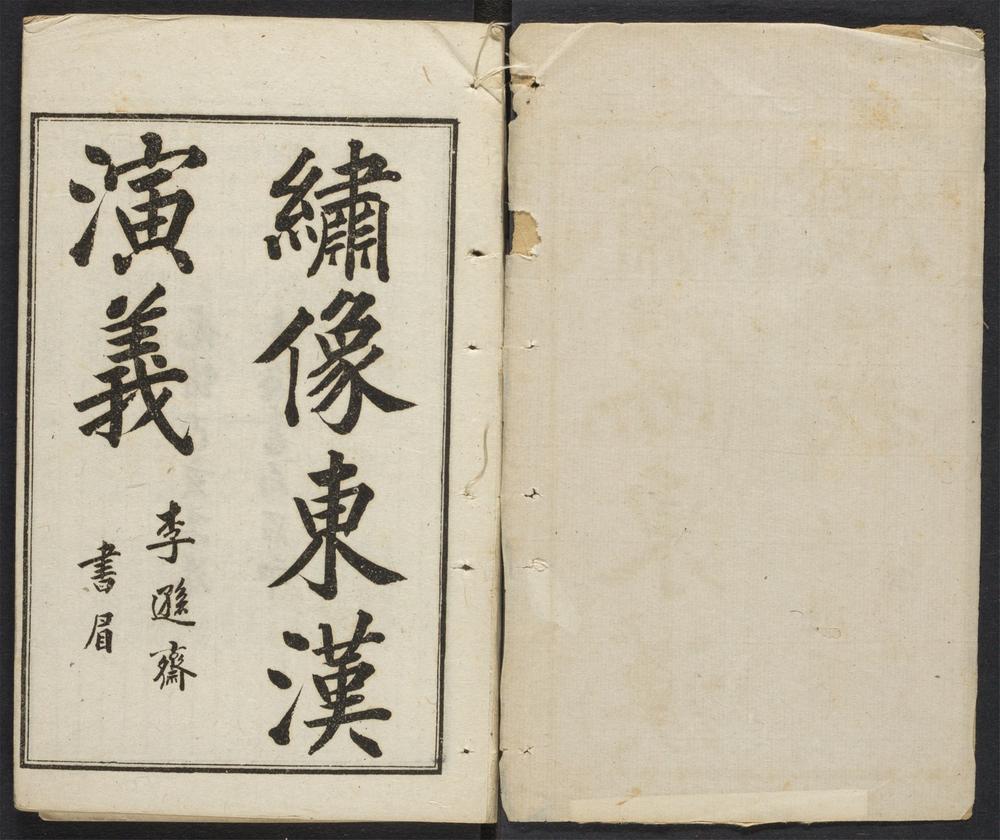 繡像東漢
演義
李遜齋
書眉